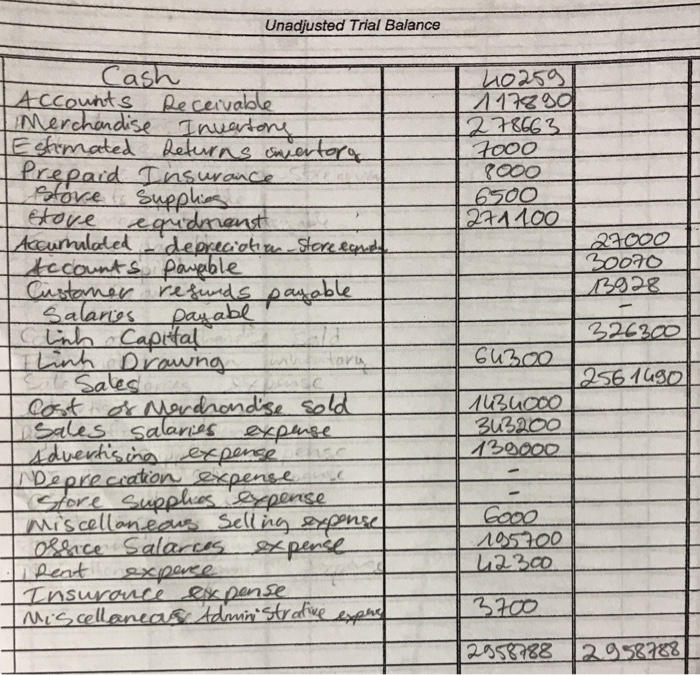 Unadjusted Trial Balance
Cash 40259
Accounts Receivable 117890
Merchandise Inventory 278663
Estimated Returns invertory 7000
Prepaid Insurance 8000
Store Supplies 6500
Store equidment 271100
Accumulated - depreciation - Store equip 27000
Accounts payable 30070
Customer refunds payable 13928
Salaries payabl -
Linh Capital 326300
Linh Drawng 64300
Sales 2561490
Cost of Merchandise Sold 1434000
Sales salaries expense 343200
Advertising expense 139000
Depreciation expense -
Store Supplies expense -
Miscellaneous Selling expense 6000
Office Salaries expense 195700
Rent expense 42300
Insurance expense
Miscellaneous Administrative expens 3700
2958788 2958788